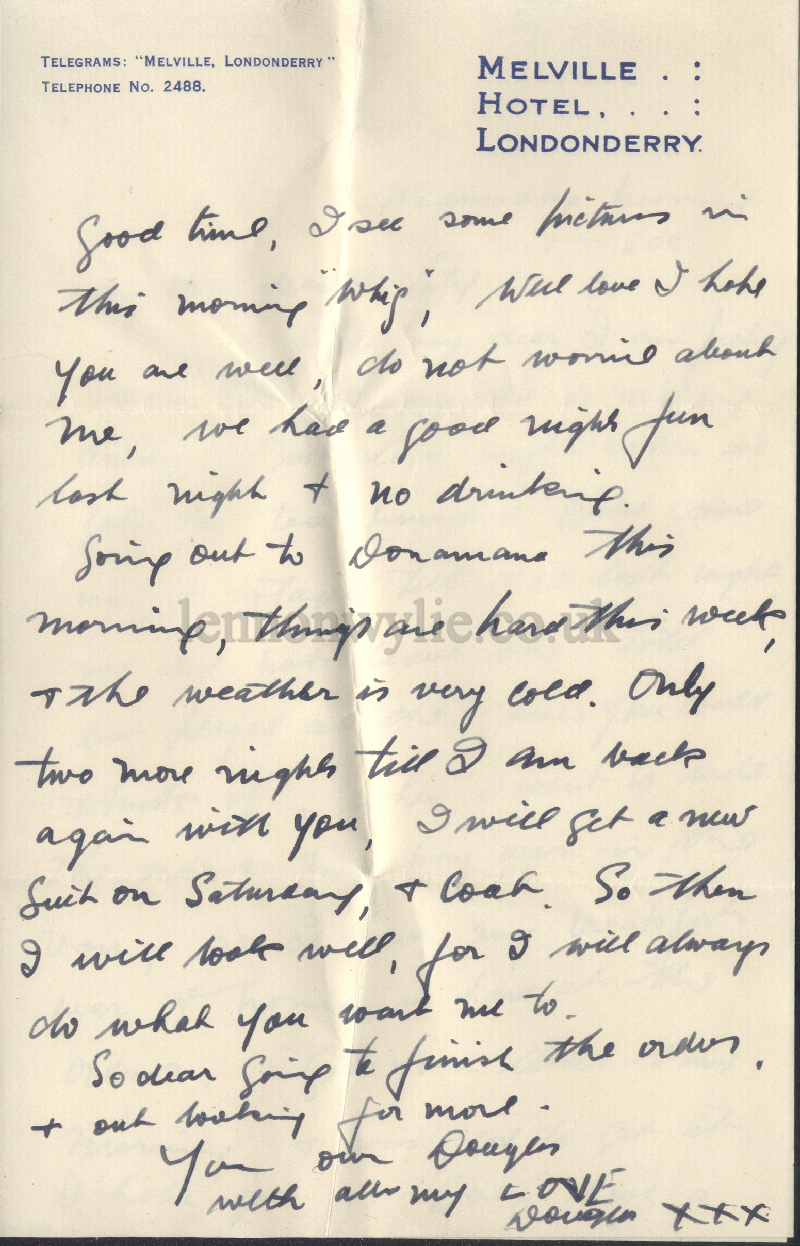 TELEGRAMS: "MELVILLE, LONDONDERRY"
TELEPHONE No. 2488.
MELVILLE . :
HOTEL, . . :
LONDONDERRY.
Good time, I see some pictures in
this morning "Whig", Well love I hope
you are well, do not worrie about
me, we had a good nights fun
last night + no drinking.
Going out to Donamana this
morning, things are hard this week,
+ the weather is very cold. Only
two more nights till I am back
again with you, I will get a new
Suit on Saturday, + Coat. So then
I will look well, for I will always
do what you want me to.
So dear going to finish the orders,
+ out looking for more.
Your own Douglas
with all my LOVE
Douglas XXX
lennonwylie.co.uk